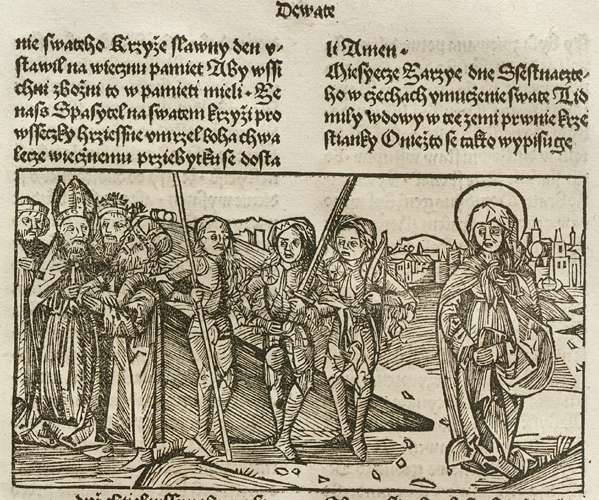 Dewate
nie swateho Krzyże slawny den v⸗
stawil na wiecznu pamiet Aby wssi
chni zbożni to w pamieti mieli · Ze
nass Spasytel na swatem krzyżi pro
wsseczky hrziessne vmrzel koha chwa
lecze wiecznemu prziebytku se dosta
li Amen ·
Miesyecze Zarzye dne Ssestnaczte⸗
ho w czechach vmuczenie swate Lid
mily wdowy w tee zemi prwnie krże
stianky O niežto se takto wypisuge